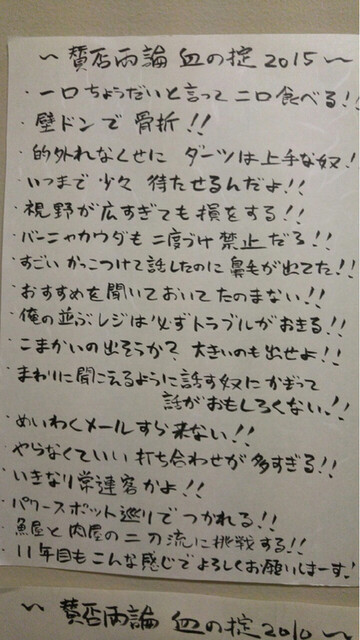 〜 賛否両論 血の掟 2015 〜
・一口ちょうだいと言って 二口食べる!!
・壁ドンで 骨折!!
・的外れなくせに ダーツは上手な奴!
・いつまで 少々 待たせるんだよ!!
・視野が広すぎても 損をする!!
・バーニャカウダも 二度づけ 禁止だろ!!
・すごい かっこつけて 話したのに 鼻毛が出てた!!
・おすすめを聞いておいて たのまない!!
・俺の並ぶレジは必ずトラブルがおきる!!
・こまかいの出そうか? 大きいのも出せよ!!
・まわりに聞こえるように話す奴にかぎって
話がおもしろくない!!
・めいわくメールすら来ない!!
・やらなくていい打ち合わせが多すぎる!!
・いきなり常連客かよ!!
・パワースポット巡りで つかれる!!
・魚屋と肉屋の二刀流に挑戦する!!
・11年目もこんな感じでよろしくお願いしまーす!
〜 賛否両論 血の掟 2010 〜